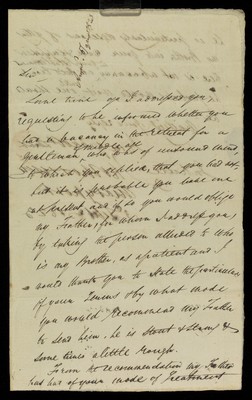 Sir/
Some time ago I addressed you,
requesting to be informed whether you
had a vacancy in the retreat for a
Gentleman, who was of unsound mind
of middle age
to which you replied, that you had not
but it is probable you have one
at present and if so you would oblige
my Father, for whom I address you,
by taking the person alluded to who
is my Brother, as a patient and, I
would thank you to state the particulars
of your Terms & by what mode
you would recommend my Father
to send him, he is Stout & Strong &
some times a little rough.
From the recommendation my Father
has had of your mode of Treatment